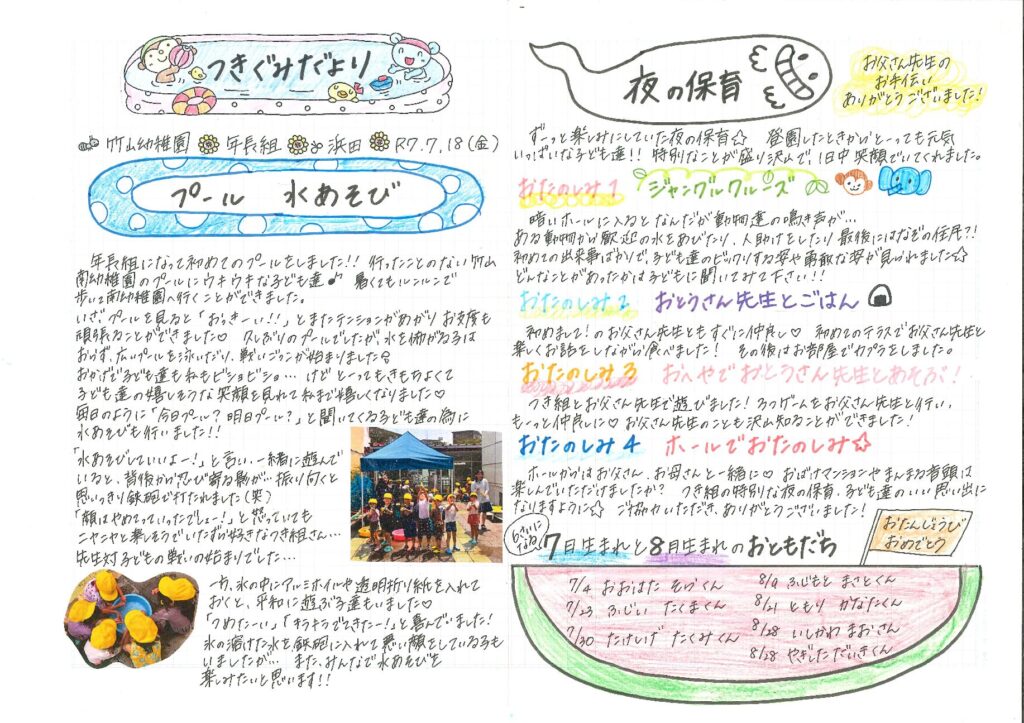 つきぐみだより
竹山幼稚園 年長組 浜田 R7.7.18(金)
プール 水あそび
年長組になって初めてのプールをしました!! 行ったことのない竹山
南幼稚園のプールにウキウキな子ども達♪ 暑くてもルンルンで
歩いて南幼稚園へ行くことができました。
いざプールを見ると「おっきーい!!」とまたテンションがあがり お支度も
頑張ることができました♡ 久しぶりのプールでしたが、水を怖がる子は
おらず、広いプールを泳いだり、戦いごっこが始まりました
おかげで子ども達も私もビショビショ… けど とーってもきもちよくて
子ども達の嬉しそうな笑顔を見れて私まで嬉しくなりました♡
毎日のように「今日プール?明日プール?」と聞いてくる子ども達の為に
水あそびも行いました!!
「水あそびしていいよー!」と言い、一緒に遊んで
いると、背後から忍び寄る影が… 振り向くと
思いっきり鉄砲で打たれました(笑)
「顔はやめてっていったでしょー!」と怒っていても
ニヤニヤと楽しそうでいたずら好きなつき組さん…
先生対子どもの戦いの始まりでした…
一方、氷の中にアルミホイルや透明折り紙を入れて
おくと、平和に遊ぶ子達もいました♡
「つめたーい」「キラキラできたー!」と喜んでいました!
氷の溶けた水を鉄砲に入れて悪い顔をしている子も
いましたが… また、みんなで水あそびを
楽しみたいと思います!!
夜の保育
お父さん先生の
お手伝い
ありがとうございました!
ずーっと楽しみにしていた夜の保育☆ 登園したときからとーっても元気
いっぱいな子ども達!! 特別なことが盛り沢山で、1日中 笑顔でいてくれました。
おたのしみ1 ジャングルクルーズ
暗いホールに入るとなんだか動物達の鳴き声が…
ある動物から歓迎の水をあびたり、人助けをしたり 最後にはなぞの住民?!
初めての出来事ばかりで、子ども達のビックリする姿や勇敢な姿が見られました☆
どんなことがあったかは子どもに聞いてみて下さい!!
おたのしみ2 おとうさん先生とごはん
初めまして!のお父さん先生ともすぐに仲良し♡ 初めてのテラスでお父さん先生と
楽しくお話をしながら食べました! その後はお部屋でカプラをしました。
おたのしみ3 おへやでおとうさん先生とあそぶ!
つき組とお父さん先生で遊びました! 3つゲームをお父さん先生と行い、
もーっと仲良しに♡ お父さん先生のことも沢山知ることができました!
おたのしみ4 ホールでおたのしみ☆
ホールからはお父さん、お母さんと一緒に♡ おばけマンションやまんまる音頭は
楽しんでいただけましたか? つき組の特別な夜の保育、子ども達のいい思い出に
なりますように☆ ご協力いただき、ありがとうございました!
6さいになる 7月生まれと8月生まれのおともだち
おたんじょうび
おめでとう
7/4 おおはた そうくん
7/23 ふじい たくまくん
7/30 たけしげ たくみくん
8/9 ふじもと まさとくん
8/21 ともり かなたくん
8/28 いしかわ まおさん
8/28 やぎした だいきくん